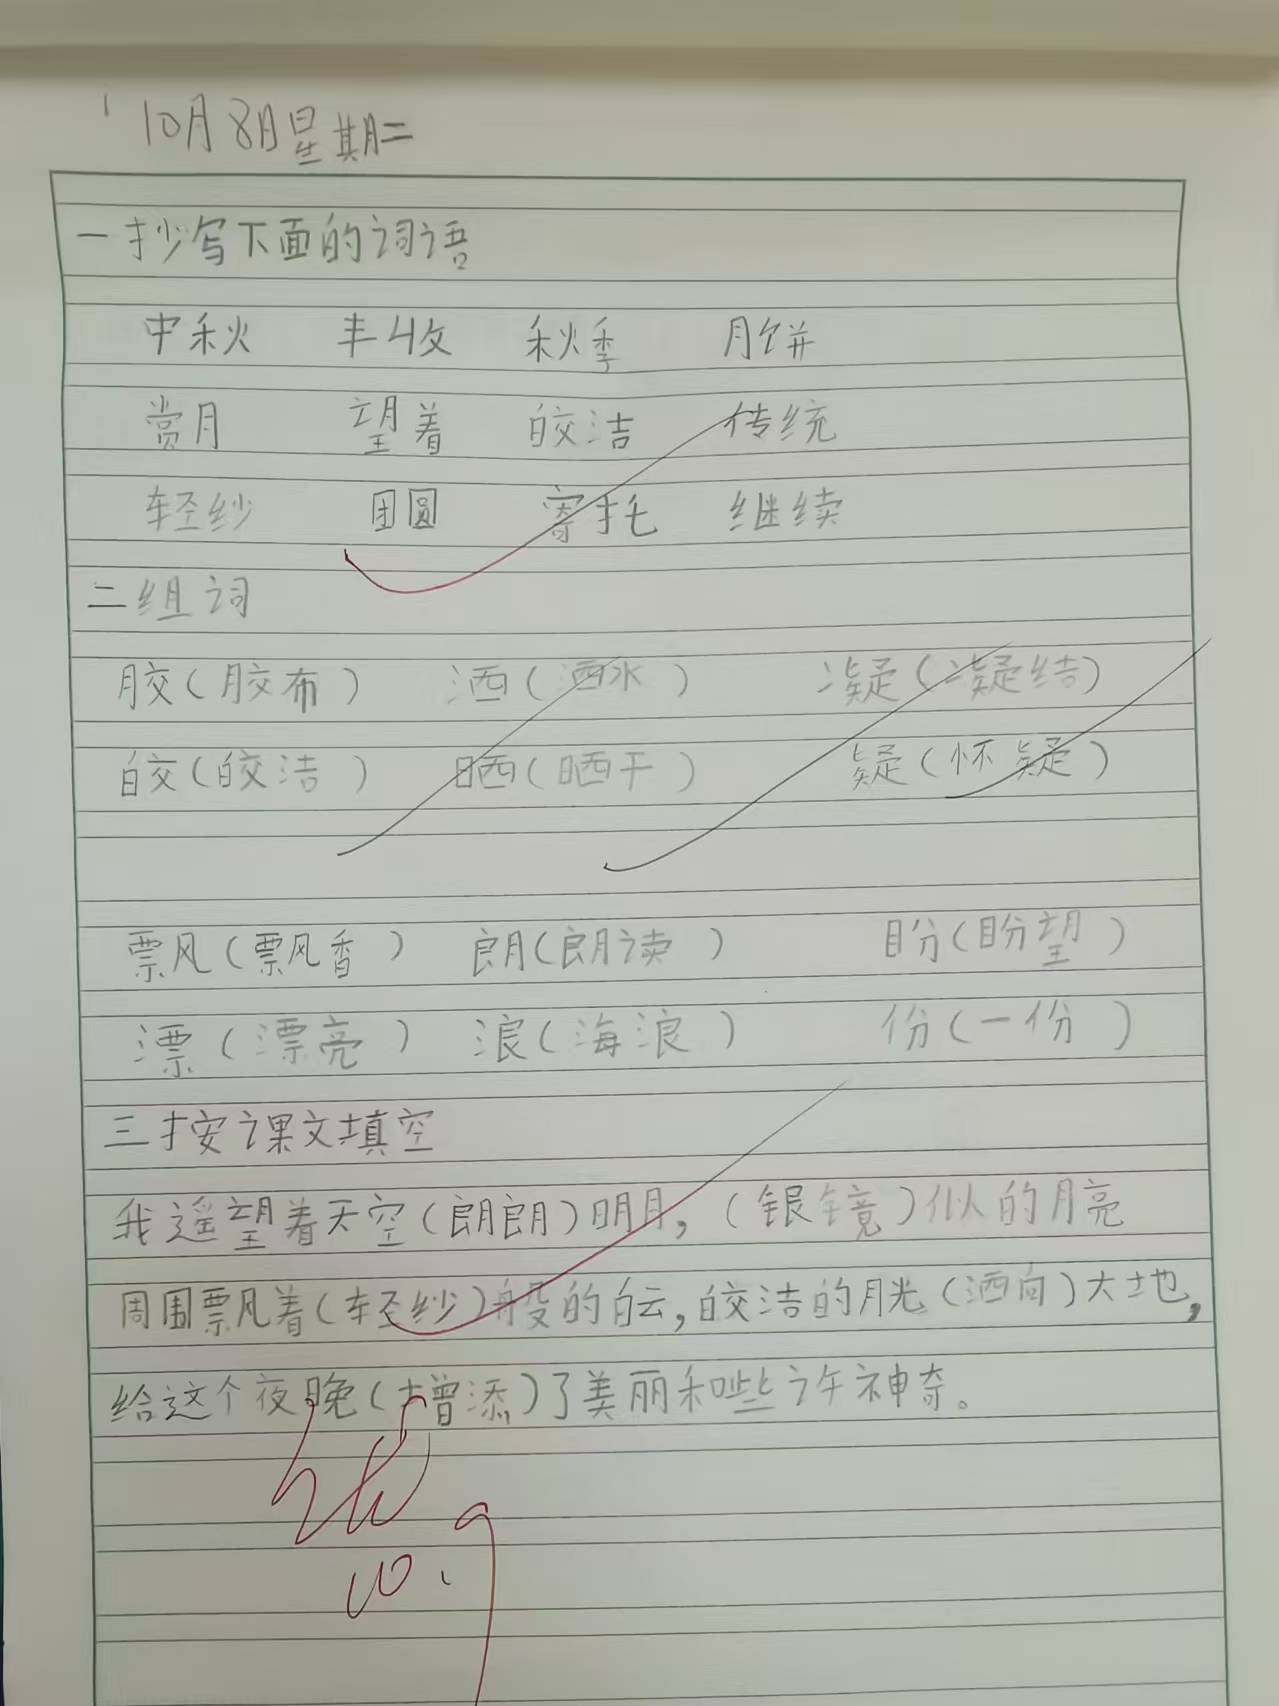 10月8日星期二
一抄写下面的词语
中秋 丰收 秋季 月饼
赏月 望着 皎洁 传统
轻纱 团圆 寄托 继续
二组词
胶(胶布) 洒(洒水) 凝(凝结)
皎(皎洁) 晒(晒干) 疑(怀疑)
飘(飘香) 朗(朗读) 盼(盼望)
漂(漂亮) 浪(海浪) 份(一份)
三按课文填空
我遥望着天空(朗朗)明月,(银镜)似的月亮
周围飘着(轻纱)般的白云,皎洁的月光(洒向)大地,
给这个夜晚(增添)了美丽和些许神奇。
10.9